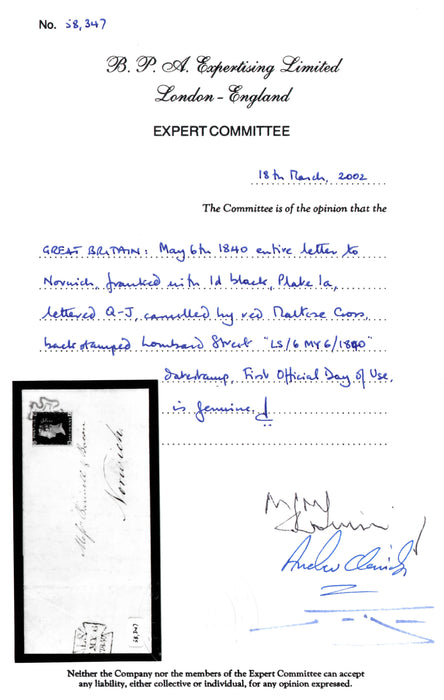 No. 58,347
B. P. A. Expertising Limited
London - England
EXPERT COMMITTEE
18th March, 2002
The Committee is of the opinion that the
GREAT BRITAIN: May 6th 1840 entire letter to
Norwich, franked with 1d black, Plate 1a,
lettered Q-J, cancelled by red Maltese Cross,
backstamped Lombard Street "LS/6 MY 6/1840"
datestamp, First Official Day of Use,
is genuine.
Norwich.
58,347
Neither the Company nor the members of the Expert Committee can accept
any liability, either collective or individual, for any opinion expressed.